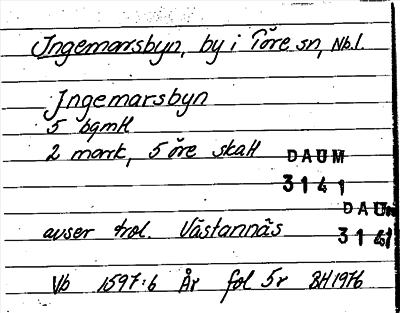 Ingemarsbyn, by i Töre sn, Nb.l.
Ingemarsbyn
5 bgmH
2 mark, 5 öre skatt
DAUM
3141
DAUM
3141
avser trol. Västannäs
Vb 1597:6 År fol 5r BH1976